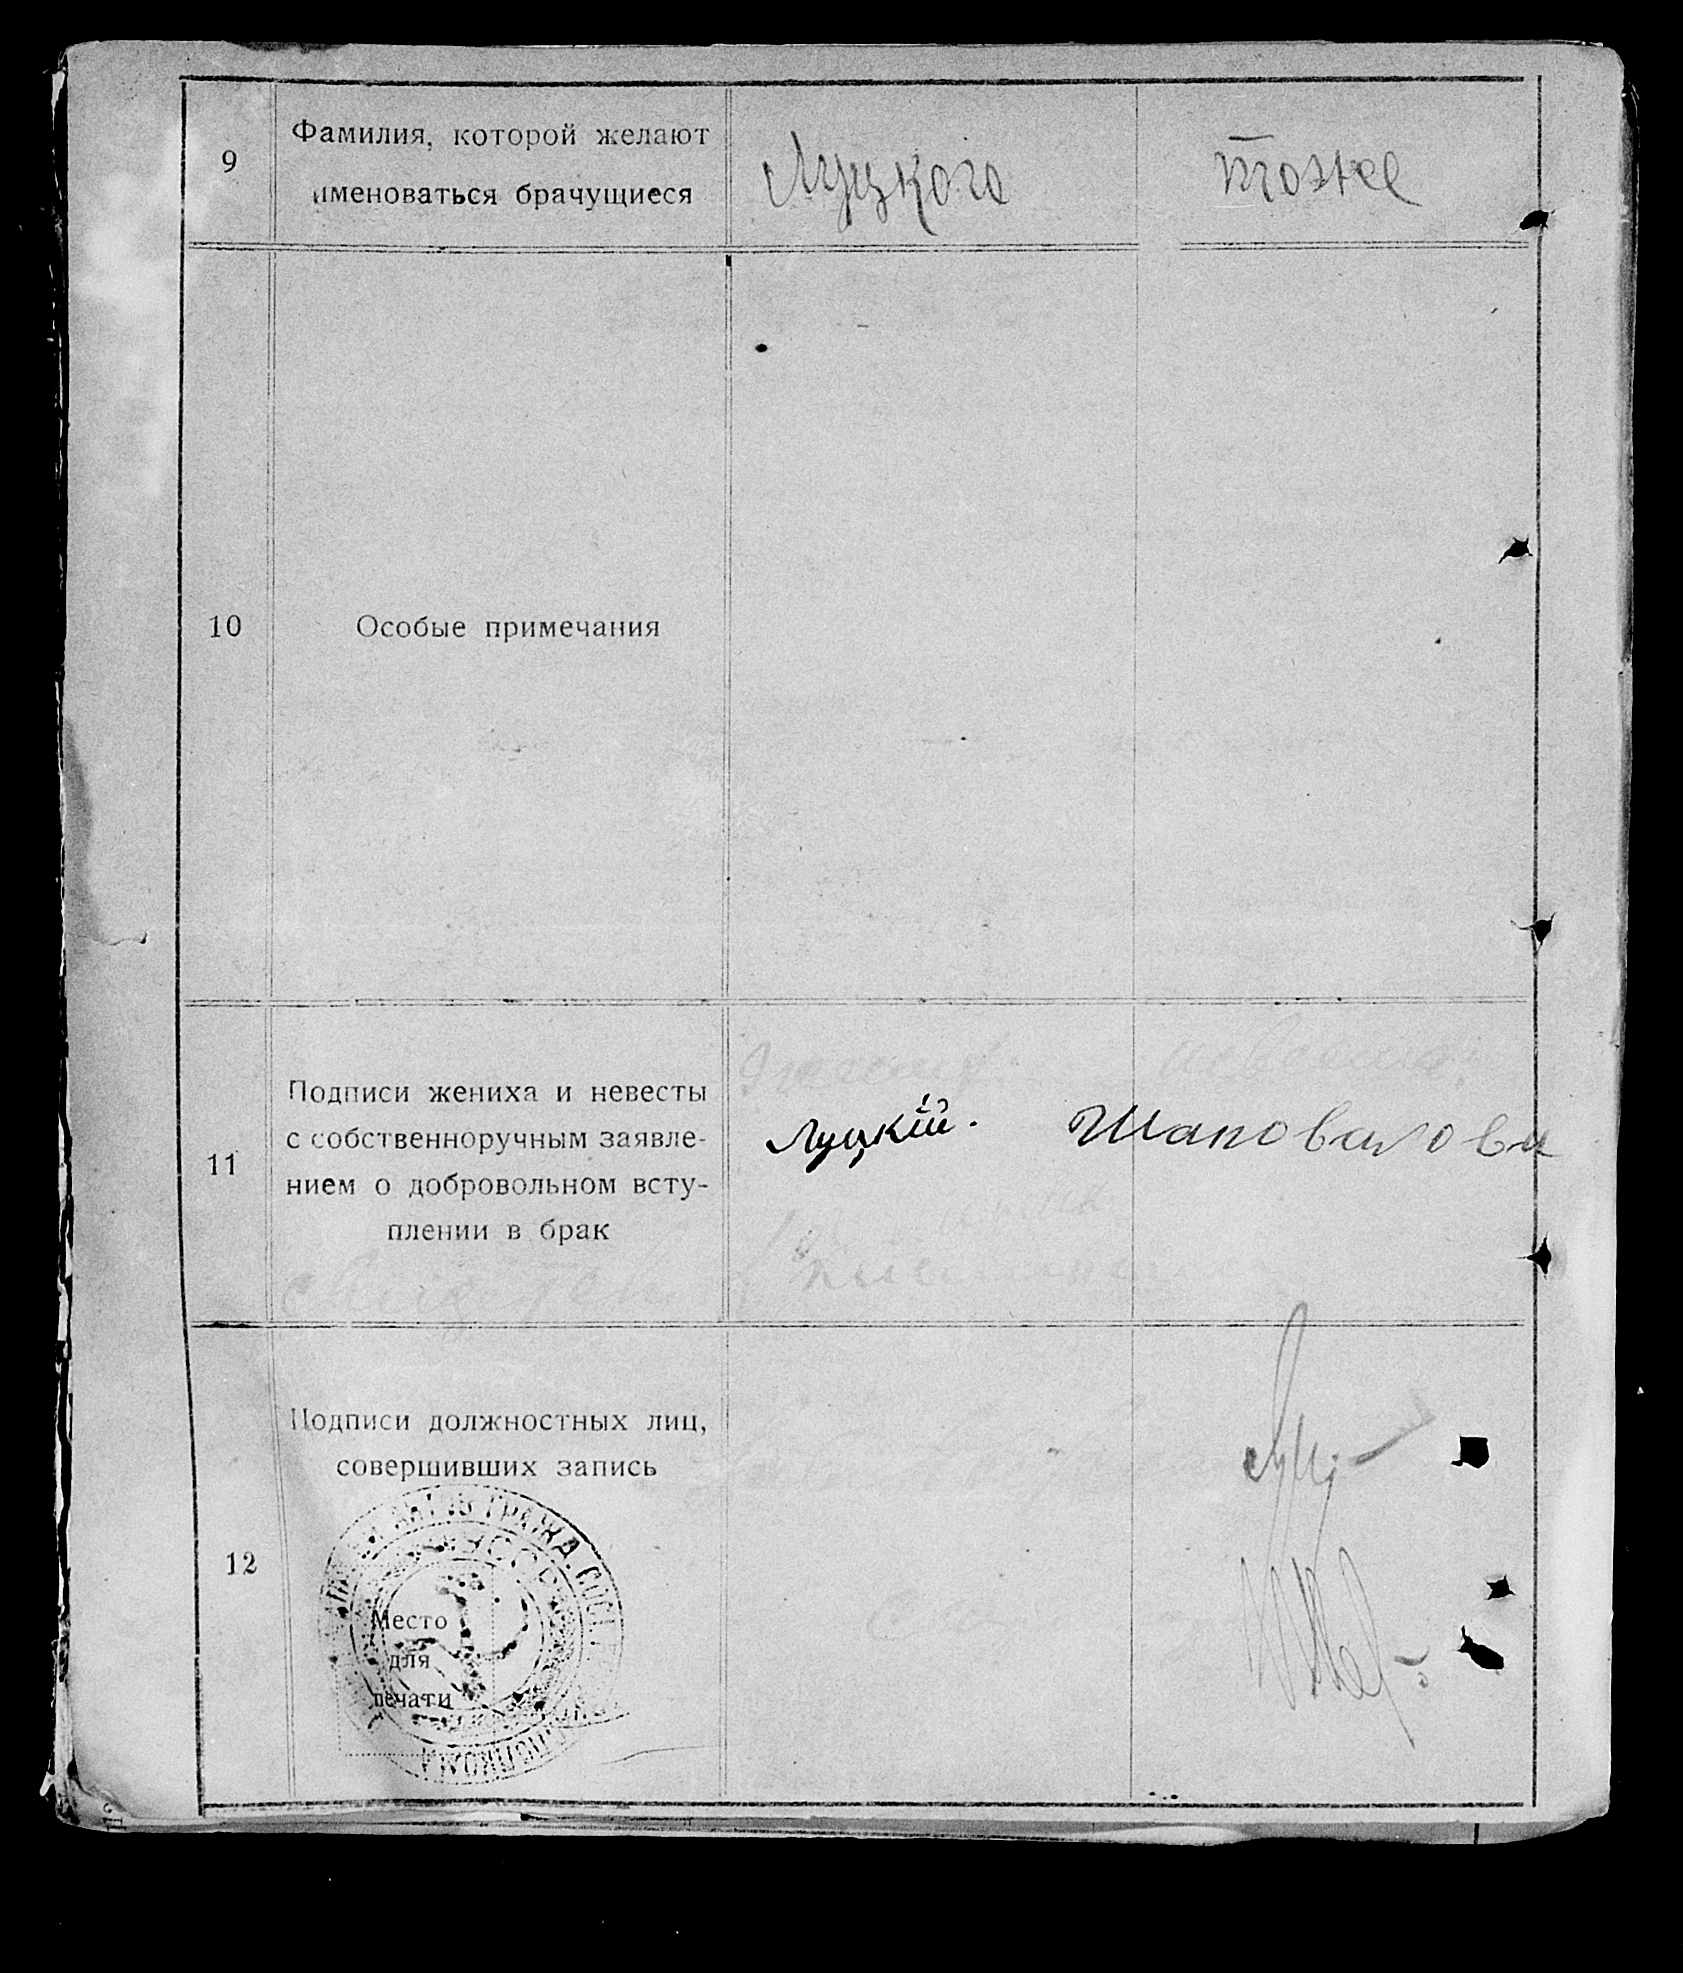 9
Фамилия, которой желают
именоваться брачущиеся
Луцкого
тоже
10
Особые примечания
11
Подписи жениха и невесты
с собственноручным заявле-
нием о добровольном всту-
плении в брак
Луцкій.
Шаповалова
12
Подписи должностных лиц,
совершивших запись
Место
для
печати